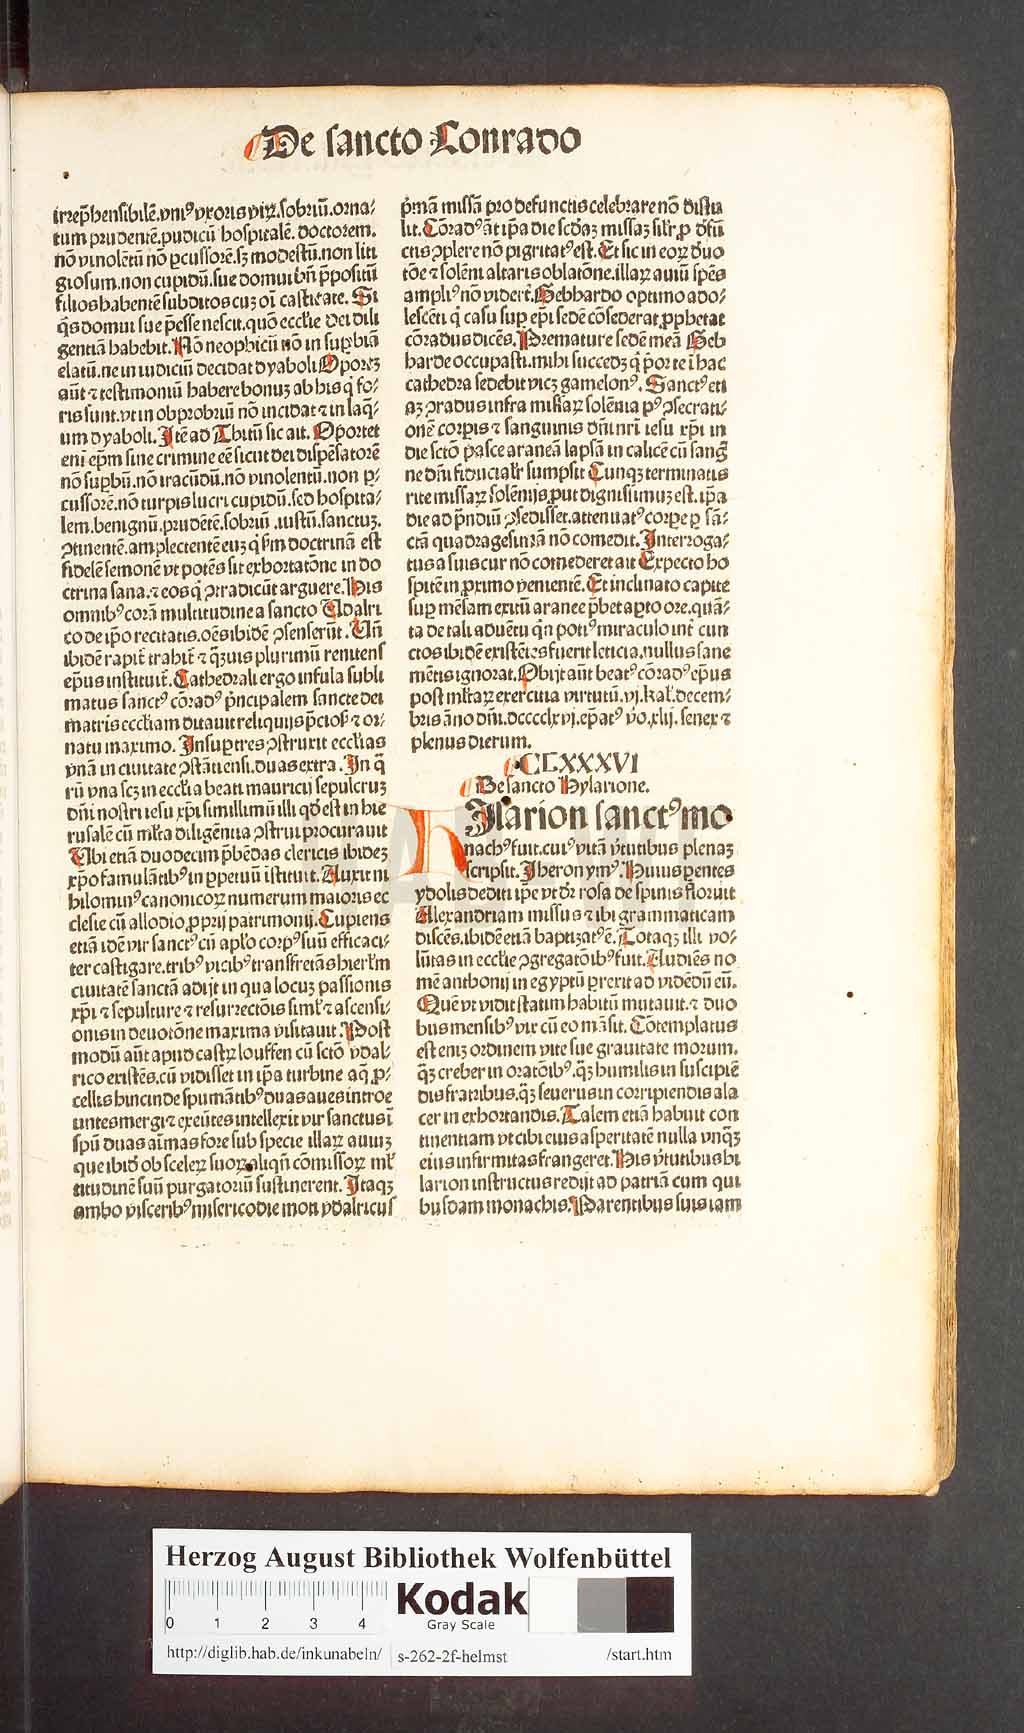 De sancto Conrado
irrep̃hensibilē.vniꝰ vxoris viꝝ.sobriū.orna⸗
tum prudentē.pudicū hospitalē.doctorem.
nō vinolētū nō ꝑcussorē.sꝫ modestū.non liti
giosum.non cupidū.sue domui bñ p̃positū
filios habentē subditos cuꝫ oī castitate. Si
q̇s domui sue p̃esse nescit.quō eccl̄ie dei dili
gentiā habebit. Nō neophicū nō in suꝑbiā
elatū.ne in iudiciū decidat dyaboli Oportꝫ
aūt ⁊ testimoniū habere bonuꝫ ab his q̇ fo⸗
ris sunt.vt in obprobriū nō incidat ⁊ in laq̄⸗
um dyaboli. Itē ad Thitū sic ait. Oportet
eni ep̄m sine crimine eē sicut dei dispēsatorē
nō suꝑbū.nō iracūdū.nō vinolentū.non ꝑ⸗
cussorē.nō turpis lucri cupidū.sed hospita⸗
lem.benignū.prudētē.sobriū.iustū.sanctuꝫ.
ꝯtinentē.amplectentē euꝫ q̇ fm̄ doctrinā est
fidelē sermonē vt potēs sit exhortatōne in do
ctrina sana.⁊ eos q̇ ꝯtradicūt arguere. His
omnibꝰ corā multitudine a sancto Udalri
co de ip̄o recitatis.oēs ibidē ꝯsenserūt. Uñ
ibidē rapit̃ trahit̃ ⁊ q̄ꝫuis plurimū renitens
ep̄us instituit̃. Cathedrali ergo infula subli
matus sanctꝰ cōradꝰ p̃ncipalem sancte dei
matris eccl̄iam ditauit reliquijs p̃ciosꝭ ⁊ or⸗
natu maximo. Insuꝑ tres ꝯstruxit eccl̄ias
vnā in ciuitate ꝯstātiensi.duas extra. In q̄
rū vna scꝫ in eccl̄ia beati mauricij sepulcruꝫ
dñi nostri iesu xp̄i simillimū illi qd̓ est in hie
rusalē cū ml̄ta diligētia ꝯstrui procurauit
Ubi etiā duodecim p̃bēdas clericis ibidēꝫ
xp̄o famulātibꝰ in ꝑpetuū īstituit. Auxit ni
hilominꝰ canonicoꝝ numerum maioris ec
clesie cū allodio ꝓprij patrimonij. Cupiens
etiā idē vir sanctꝰ cū apl̄o corpꝰ suū efficaci⸗
ter castigare.tribꝰ vicibꝰ transfretās hierl̄m
ciuitatē sanctā adijt in qua locuꝫ passionis
xp̄i ⁊ sepulture ⁊ resurrectōis simĺ ⁊ ascensi⸗
onis in deuotōne maxima visitauit. Post
modū aūt apud castꝝ louffen cū sctō vdal⸗
rico existēs.cū vidisset in ip̄a turbine aq̄ ꝓ⸗
cellis hincinde spumātibꝰ duas aues introe
untes mergi ⁊ exeūtes intellexit vir sanctus ī
spū duas aīmas fore sub specie illaꝝ auiuꝫ
que ibid̓ ob sceleꝝ suoꝝ aliqñ cōmissoꝝ ml̄⸗
titudinē suū purgatoriū sustinerent. Itaqꝫ
ambo visceribꝰ misericordie moti vdalricus
p̃mā missā pro defunctis celebrare nō distu
lit. Cōradꝰ āt ip̄a die sc̄d̓aꝫ missaꝫ silr̓ ꝓ d̓fū
ctis ꝯplere nō pigritatꝰ est. Et sic in eoꝝ d̓uo
tōe ⁊ solēni altaris oblatōne.illaꝝ auiū spēs
ampliꝰ nō vider̄t. Gebhardo optimo ado⸗
lescēti q̇ casu suꝑ ep̄i sedē cōsederat ꝓphetat
cōradus dicēs. Premature sedē meā Geb
harde occupasti.mihi succedꝫ q̇ p̓or te ī hac
cathedra sedebit vicꝫ gamelonꝰ. Sanctꝰ eti
aꝫ ꝯradus infra missaꝝ solēnia pꝰ ꝯsecrati⸗
onē corpis ⁊ sanguinis dñi nr̄i iesu xp̄i in
die sctō pasce araneā lapsā in calicē cū sang̓
ne dñi fiducialr̓ sumpsit Cunqꝫ terminatis
rite missaꝝ solēnijs ꝓut dignissimuꝫ est.ip̄a
die ad p̃ndiū ꝯsedisset.attenuatꝰ corpe ꝑ sā⸗
ctā quadragesimā nō comedit. Interroga⸗
tus a suis cur nō comederet ait Expecto ho
spitē in ꝓximo venientē. Et inclinato capite
suꝑ mēsam exitū aranee p̃bet aꝑto ore.quā⸗
ta de tali aduētu q̇n potiꝰ miraculo int̃ cun
ctos ibidē existētes fuerit leticia.nullus sane
mētis ignorat. Obijt aūt beatꝰ cōradꝰ ep̄us
post ml̄taꝝ exercitia virtutū.vj.kal̄.decem⸗
bris āno dñi.dcccclxvj.ep̄atꝰ vo̓.xlij.senex ⁊
plenus dierum.
CLXXXVI
De sancto Hylarione.
HIlarion sanctꝰ mo
nachꝰ fuit.cuiꝰ vitā v̓tutibus plenaꝫ
scripsit. Iheronymꝰ. Huius ꝑentes
ydolis dediti ip̄e vt d̓r rosa de spinis floruit
Alexandriam missus ⁊ ibi grammaticam
discēs.ibidē etiā baptizatꝰ ē. Totaqꝫ illi vo⸗
lūtas in eccl̄ie ꝯgregatōibꝰ fuit. Audiēs no
mē anthonij in egyptū ꝑrexit ad vidēdū eū.
Quē vt vidit statim habitū mutauit.⁊ duo
bus mensibꝰ vix cū eo māsit. Cōtemplatus
est eniꝫ ordinem vite sue grauitatē morum.
q̄ꝫ creber in oratōibꝰ.q̄ꝫ humilis in suscipiē
dis fratribus.q̄ꝫ seuerus in corripiendis ala
cer in exhortandis. Talem etiā habuit con
tinentiam vt cibi eius asperitatē nulla vnq̄ꝫ
eius infirmitas frangeret. His v̓tutibus hi
larion instructus redijt ad patriā cum qui
busdam monachis. Parentibus suis iam
HAB-WF
Herzog August Bibliothek Wolfenbüttel
0 1 2 3 4
Kodak
Gray Scale
http://diglib.hab.de/inkunabeln/ s-262-2f-helmst /start.htm